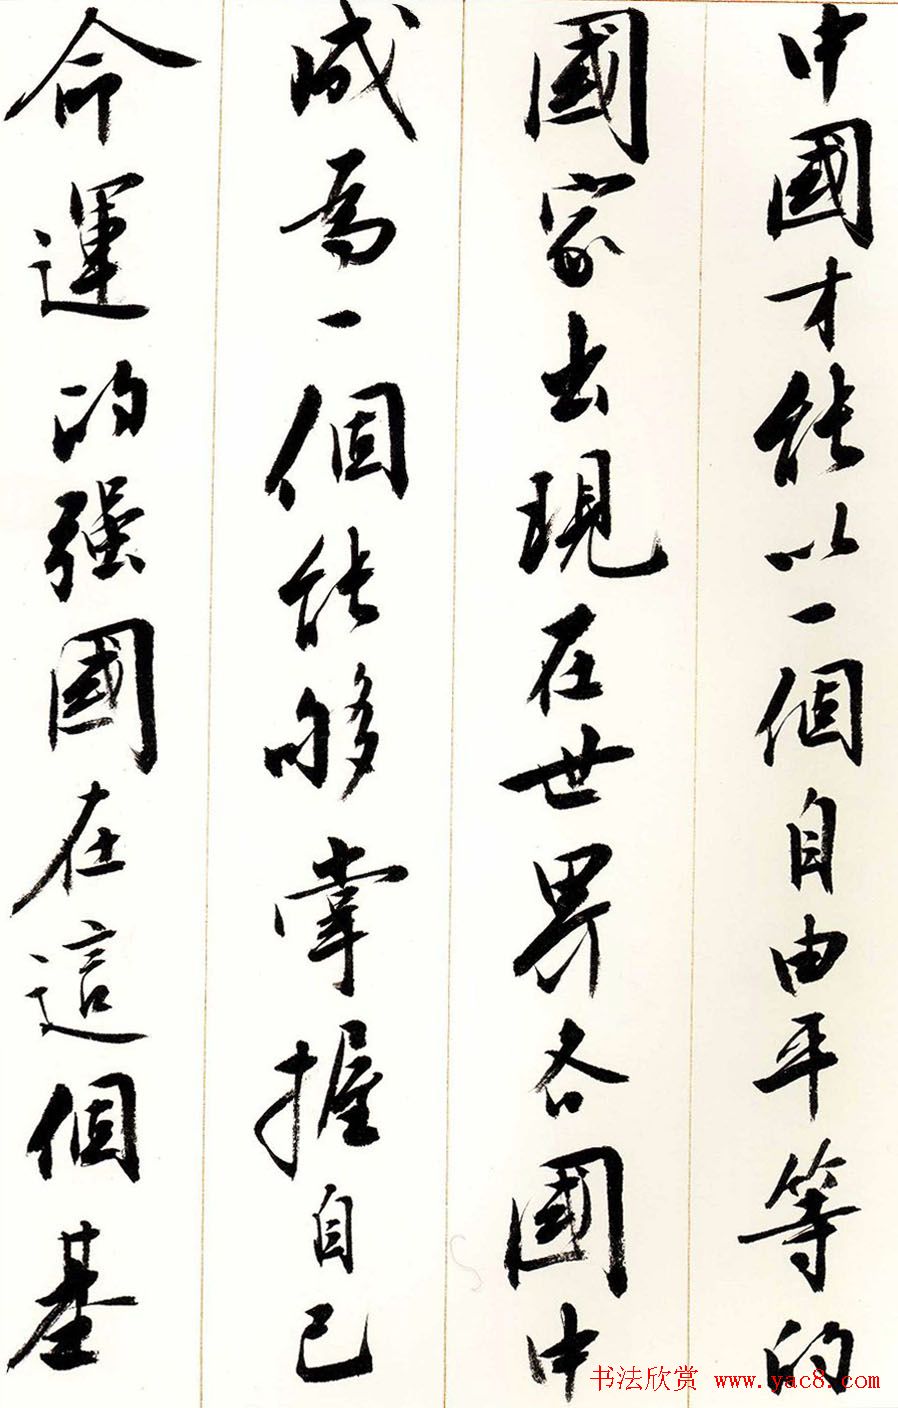 中國才能以一個自由平等的
國家出現在世界各國中
成為一個能够掌握自己
命運的强國在這個基
书法欣赏 www.yac8.com